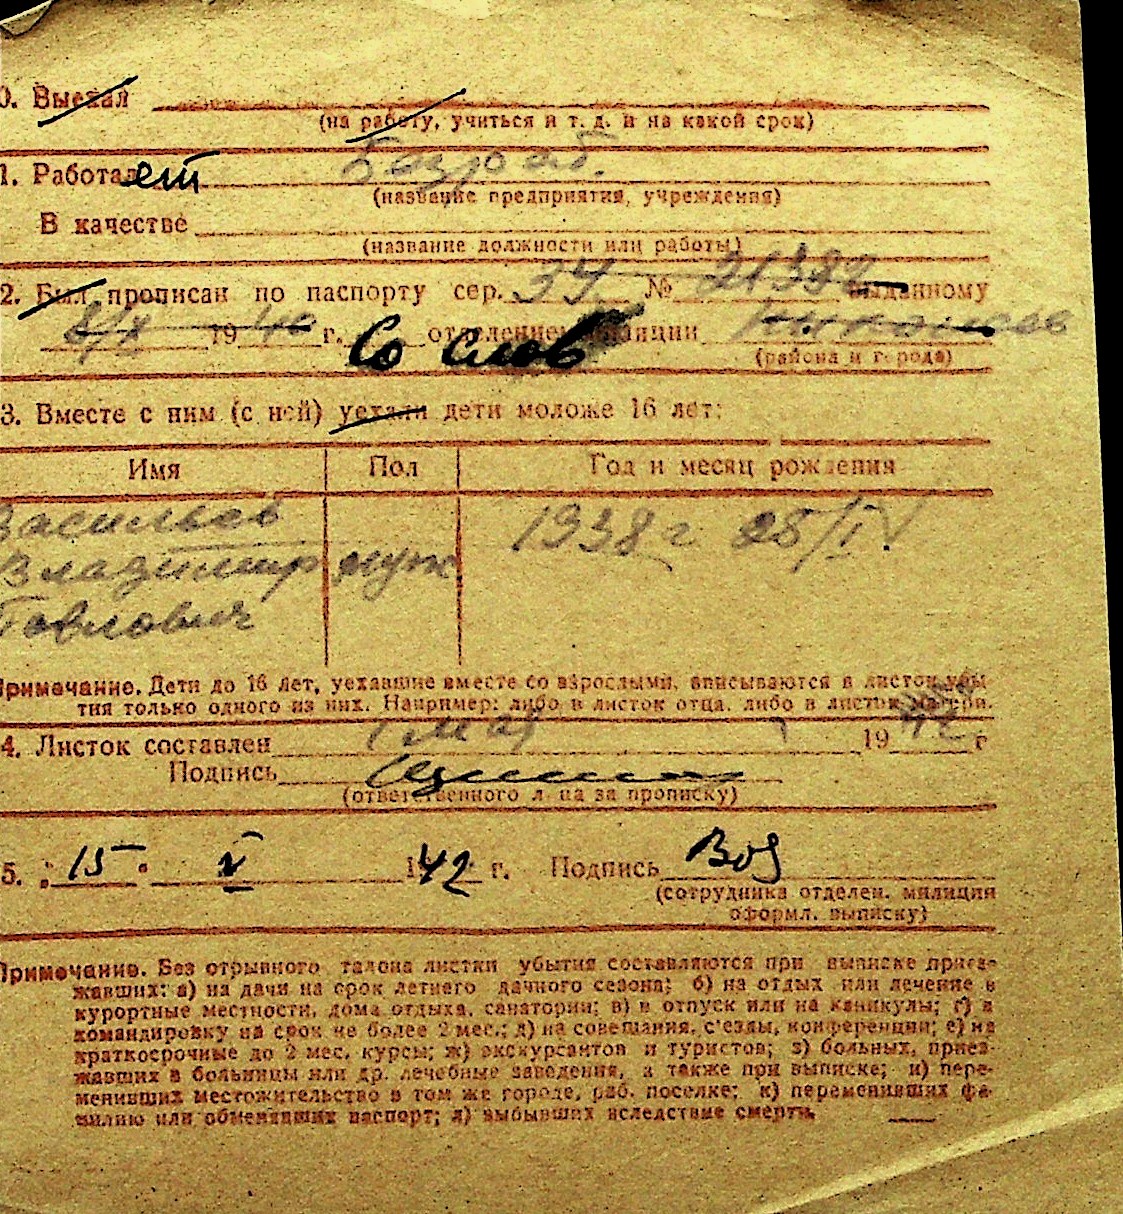 0. Выехал
(на работу, учиться и т. д. и на какой срок)
1. Работает Безраб.
(название предприятия, учреждения)
В качестве
(название должности или работы)
2. Был прописан по паспорту сер. № выданному
19 40 г. Со слов отделением милиции
(района и города)
3. Вместе с ним (с ней) уехали дети моложе 16 лет:
Имя Пол Год и месяц рождения
Васильев 1938 г 25/IV.
Владимир муж
Павлович
Примечание. Дети до 16 лет, уехавшие вместе со взрослыми, вписываются в листок убы
тия только одного из них. Например: либо в листок отца, либо в листок матери.
4. Листок составлен 1 мая 19 42 г
Подпись
(ответственного лица за прописку)
5. „ 15 " V 1942 г. Подпись
(сотрудника отделен. милиции
оформл. выписку)
Примечание. Без отрывного талона листки убытия составляются при выписке приез-
жавших: а) на дачи на срок летнего дачного сезона; б) на отдых или лечение в
курортные местности, дома отдыха, санатории; в) в отпуск или на каникулы; г) в
командировку на срок не более 2 мес.; д) на совещания, с'езды, конференции; е) на
краткосрочные до 2 мес. курсы; ж) экскурсантов и туристов; з) больных, приез-
жавших в больницы или др. лечебные заведения, а также при выписке; и) пере-
менивших местожительство в том же городе, раб. поселке; к) переменивших фа-
милию или обменявших паспорт; л) выбывших вследствие смерти.